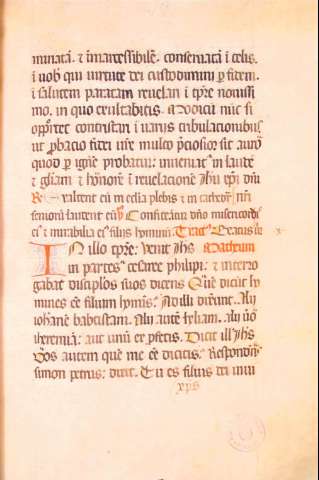 minatā. ⁊ īmarcessibilē. conseruatā ī celis.
ī uob̄ qui uirtute dei custodimini ꝑ fidem.
ī salutem paratam reuelari ī tp̄re nouissi
mo. in quo exultabitis. Modicū nūc si
oportet contristari ī uariis tribulacionibus
ut ꝓbacio fidei ur̄e multo p̄ciosior sit auro
quod ꝑ ignē probatur: inueniat᷑ in laudē
⁊ gl̄iam ⁊ honorē ī reuelacionē ih̄u xp̄i dn̄i
Exaltent eū in eclia plebis ⁊ in cathedr̄
seniorū laudent eū Confiteant᷑ dn̄o misericordi
e eius ⁊ mirabilia ei᷒ filiis hominū Tract᷒
IN illo tp̄re: Venit ih̄s Matheum
in partes cesaree philipi: ⁊ interro
gabat disciplos suos dicens Quē dicūt ho
mines eē filium hoīnis: At illi dixerūt. Alij
iohanē babtistam. Alij autē helyam. Alij u̅o
iheremiā: aut unū ex ꝓfetis. Dicit ill᷒ ih̄s
Vos autem quē me eē dicitis: Respondēs
simon petrus: dixit. Tu es filius dei uiui
xp̄s